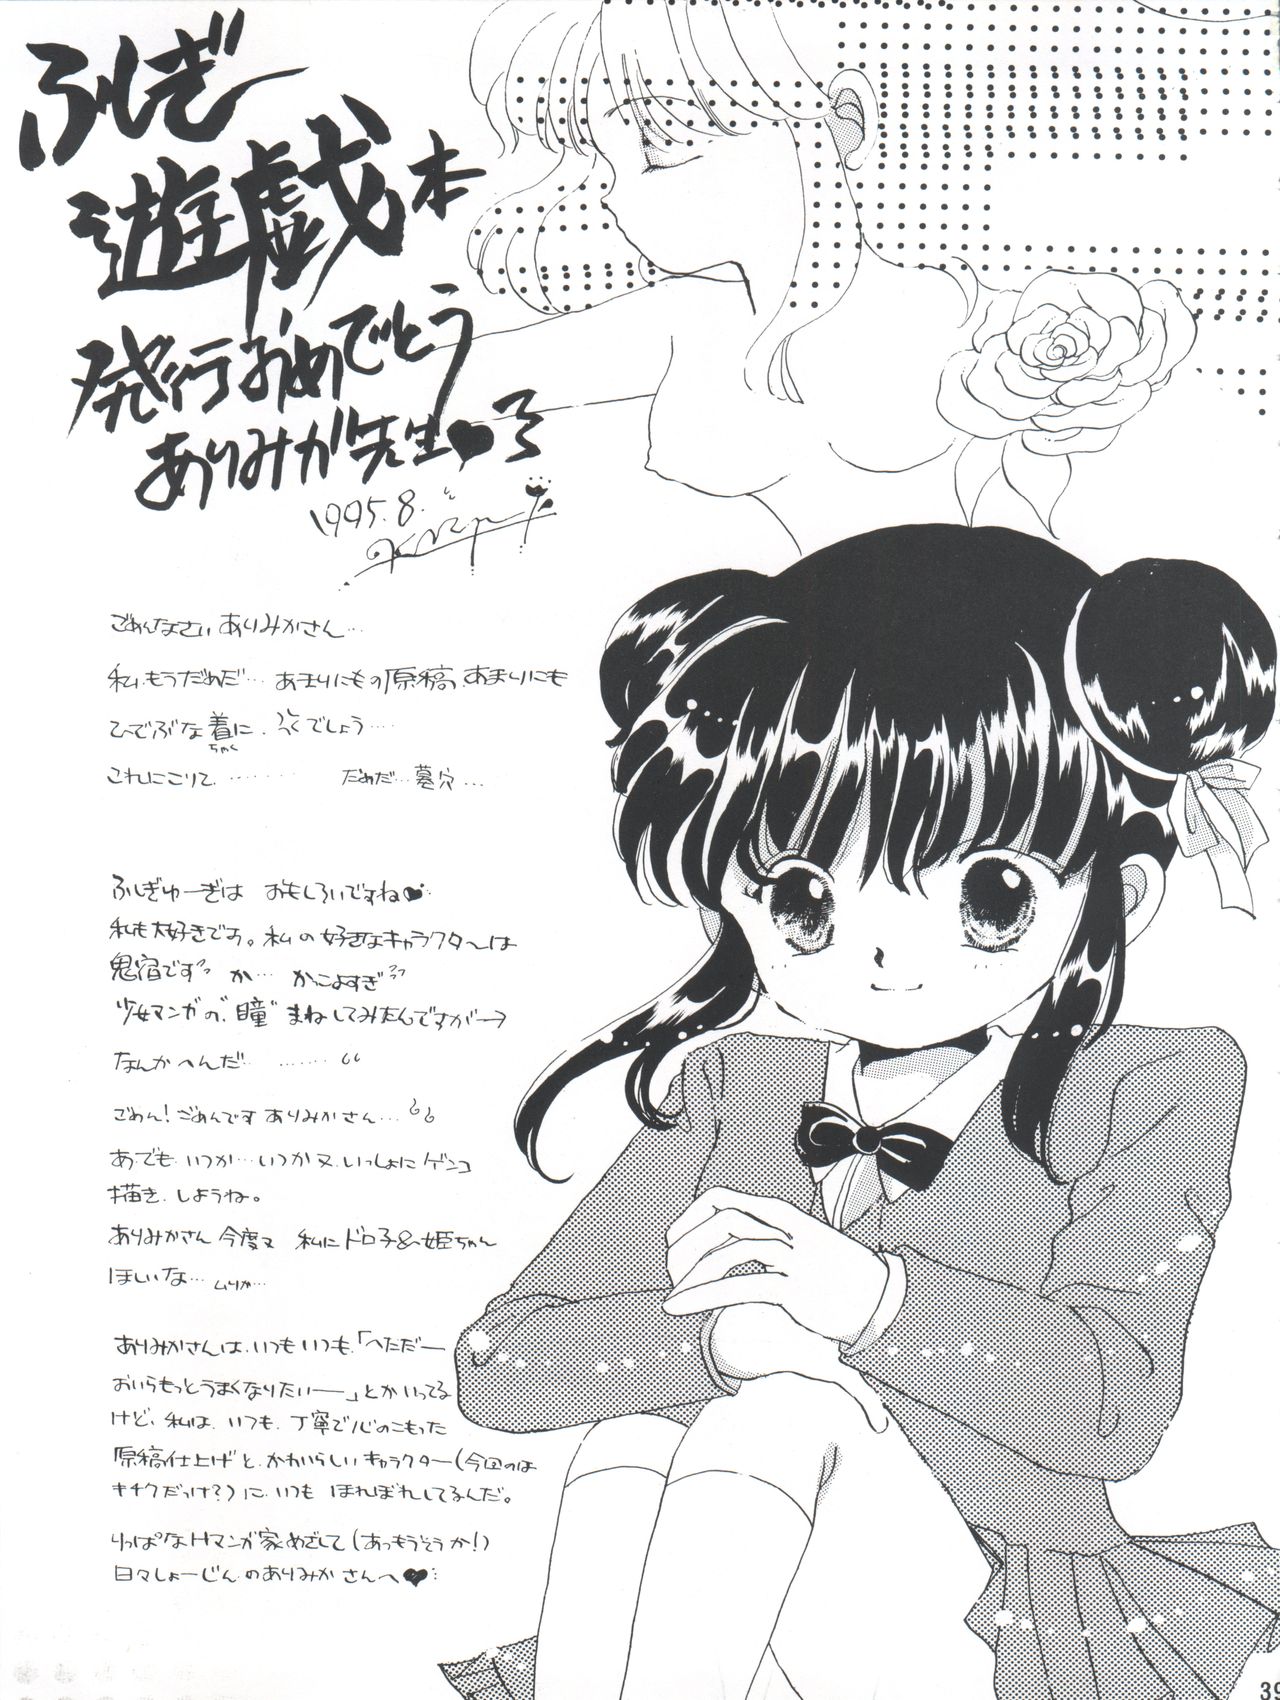 ふしぎ
遊戯本
発行おめでとう
ありみか先生♥
1995.8.
ごめんなさい ありみかさん…
私、もうだめだ… あまりにもの原稿、あまりにも
ひでぶな着に、 でしょう…
ちゃく
これにこりて、……… だめだ…墓穴…
ふしぎゆーぎは おもしろいですね♥
私も大好きです。私の好きなキャラクターは
鬼宿です か… かっこよすぎ
少女マンガの"瞳"まねしてみたんですが→
なんかへんだ… ………
ごめん!ごめんです ありみかさん…
あ、でも、いつか…いつか又、いっしょに ゲンコ
描き、しようね。
ありみかさん 今度又 私に ドロ子&姫ちゃん
ほしいな… ムリか…
ありみかさんは、いつもいつも、「へただー
おいらもっとうまくなりたいー」とかいってる
けど、私は、いつも、丁寧で心のこもった
原稿仕上げと、かわいらしいキャラクター(今回のは
キチクだっけ?)に、いつも ほれぼれしてるんだ。
りっぱなHマンガ家めざして(あっもうそうか!)
日々しょーじんのありみか さんへ♥
39